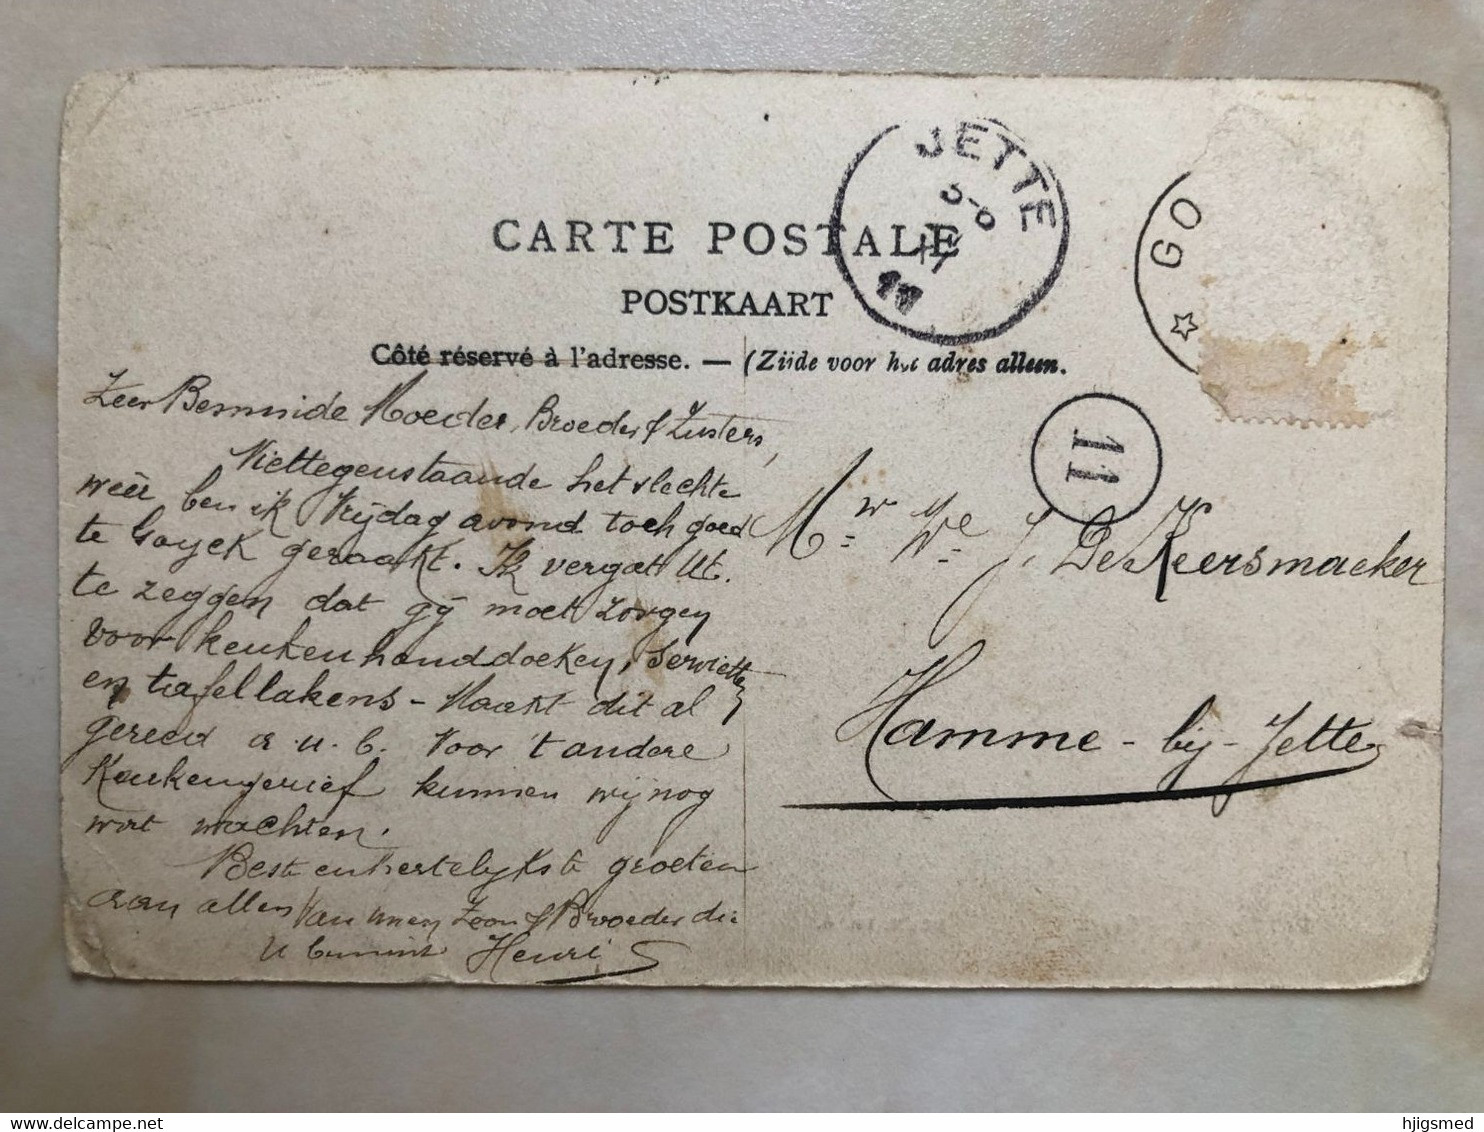 JETTE
GO
CARTE POSTALE
POSTKAART
Côté réservé à l'adresse. — (Zijde voor het adres alleen.
11
Zeer Beminnde Moeder, Broeder & Zusters,
Niettegenstaande het slechte
weêr ben ik Vrijdag avond toch goed
te Gooyck geraakt. Ik vergat Ut.
te zeggen dat gij moet zorgen
voor keukenhanddoeken, servietten
en tafellakens - Maakt dit al
gereed a.u.b. Voor 't andere
Keukengerief kunnen wij nog
wat wachten.
Beste en hertelijkste groeten
aan allen van uwen Zoon & Broeder die
U bemint Henri
Mw We J. De Keersmaeker
Hamme-bij-Jette
hjlgsmed